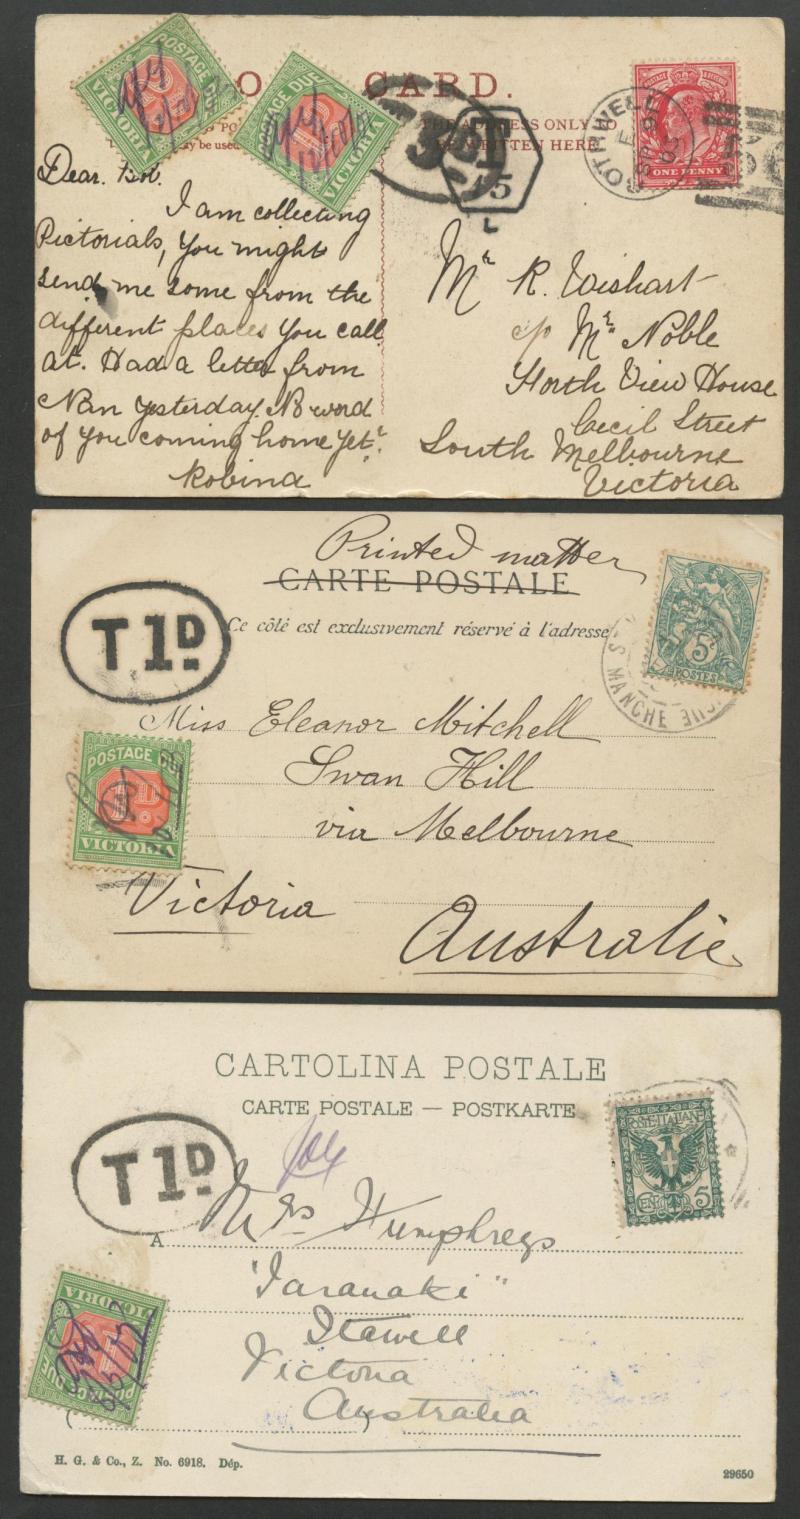 POSTAGE DUE
VICTORIA
POSTAGE DUE
VICTORIA
CARD.
THE ADDRESS ONLY TO
BE WRITTEN HERE
may be used
BOTHWELL
ONE PENNY
3D
T
15
L
Dear. Bob.
I am collecting
Pictorials, You might
send me some from the
different places You call
at. Had a letter from
Nan yesterday. No word
of you coming home yet.
Robina
Mr R. Wishart
c/o Mr Noble
North View House
Cecil Street
South Melbourne
Victoria
Printed matter
CARTE POSTALE
Ce côté est exclusivement réservé à l'adresse
T 1D.
5c
POSTES
MANCHE
Miss Eleanor Mitchell
Swan Hill
via Melbourne
Victoria
Australie
POSTAGE DUE
1D.
VICTORIA
CARTOLINA POSTALE
CARTE POSTALE — POSTKARTE
T 1D.
POSTE ITALIANE
CENT. 5
A Mrs Humphreys
"Taranaki"
Stawell
Victoria
Australia
VICTORIA
POSTAGE DUE
H. G. & Co., Z. No. 6918. Dép.
29650